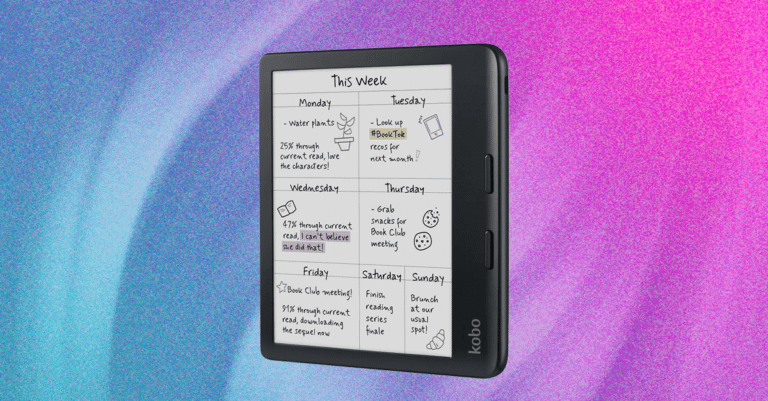 This Week
Monday
- Water plants
25% through
current read, love
the characters!
Tuesday
- Look up
#BookTok
recos for
next month!
Wednesday
47% through current
read, I can't believe
she did that!
Thursday
- Grab
snacks for
Book Club
meeting
Friday
Book Club meeting!
91% through current
read, downloading
the sequel now
Saturday
Finish
reading
series
finale
Sunday
Brunch
at our
usual
spot!
kobo